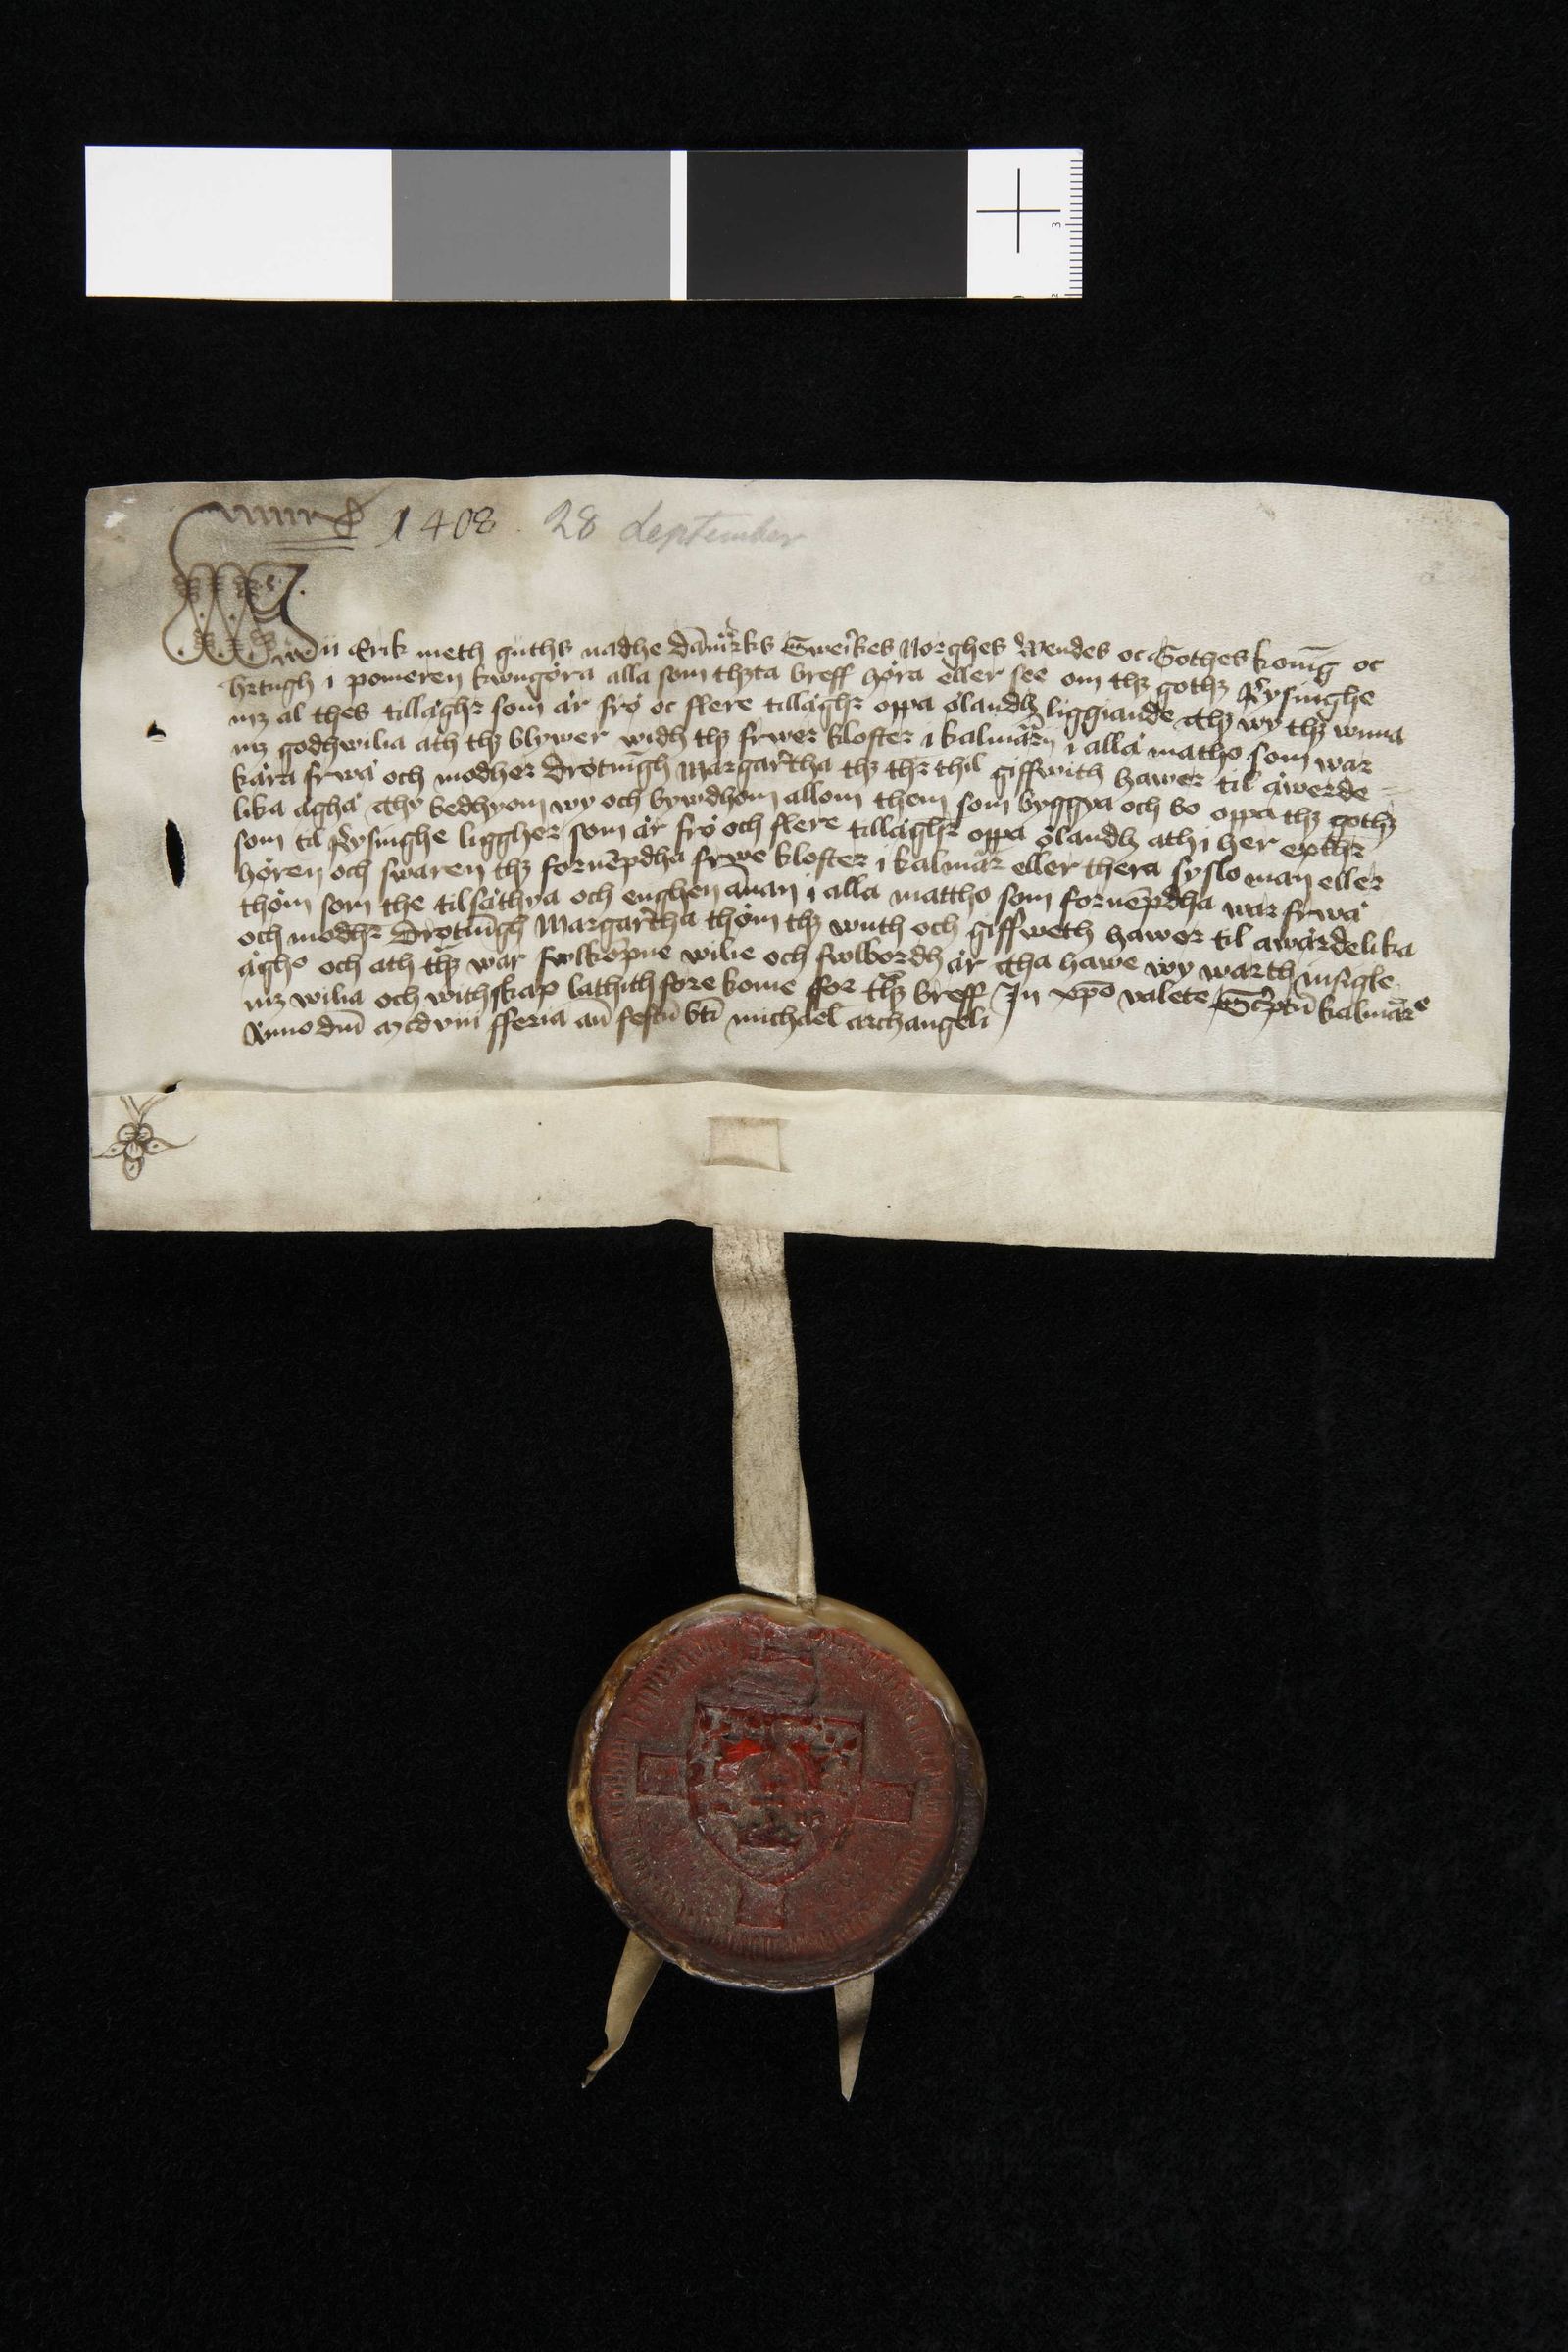 1408. 28 September
Wii Erik meth guths nadhe dāmͣrks Sweͥkes Norghes Wendes oc Gothes konīg oc
hr̄tugh i pomeren kwngøra alla som thꝫta breff høra eller see om thꝫ gothꝫ Rysinghe
mꝫ al thes tillaghr̄ som ár frø oc flere tillaghr̄ oppa ølandh liggiande Thꝫ wy thꝫ wnna
mꝫ godhwilia ath thꝫ blywer widh thꝫ frwer kloster i kalmārn i alla matho som war
kára frwá och modher Drotnīgh Margar̄tha thꝫ thr̄ thil giffwith hawer til áwerde
lika ághá Thy bedhyom wy och bywdhom allom them som byggya och bo oppa thꝫ gothꝫ
som til Rysinghe liggher som ár frø och flere tillaghr̄ oppa ølandh ath i her epthr̄
høren och swaren thꝫ fornēpdha frwe kloster i kalmār eller thera syslo man eller
thøm som the tilsáthya och enghen ānan i alla mattho som fornēpdha war frwá
och modhr̄ Drotnīgh Margar̄tha thøm thꝫ wnth och giffweth hawer til awárdelika
ágho och ath thꝫ war fwlkōpne wilie och fwlbordh ár Tha hawe wy warth insigle
mꝫ wilia och withskap lathith fore kome for thꝫ breff Jn xpō valete Scͥptū kalmāre
Anno dn̄i mcdviii fferia an̄ festū bt̄i michael archangeli